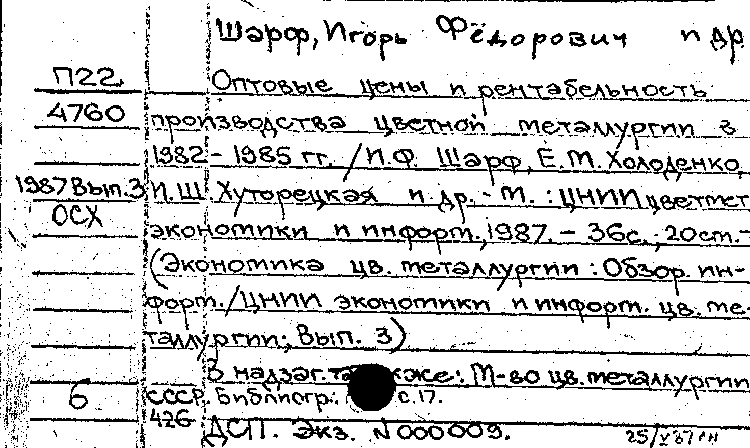 Шарф, Игорь Фёдорович и др
П22 Оптовые цены и рентабельность
4760 производства цветной металлургии в
1982-1985 гг. /И.Ф. Шарф, Е.М. Холоденко,
1987 Вып.3 И.Ш. Хуторецкая и др. - М. : ЦНИИцветмет
ОСХ экономики и информ., 1987. - 36с.; 20см. -
(Экономика цв. металлургии : Обзор. ин-
форм. /ЦНИИ экономики и информ. цв. ме-
таллургии; Вып. 3)
В надзаг. также: М-во цв. металлургии
6 СССР. Библиогр.: с.17.
426 ДСП. Экз. N000009.